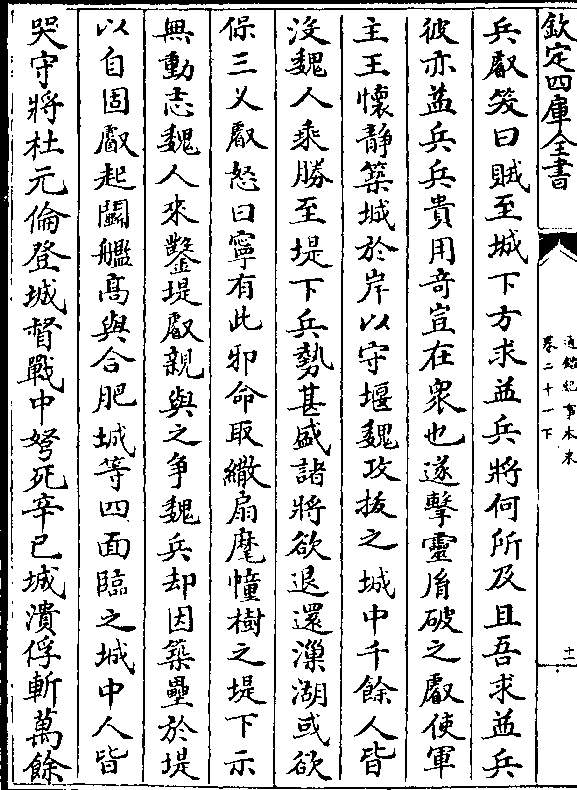 欽定四庫全書
通鑑紀事本末
卷二十一下
十一
兵叡笑曰賊至城下方求益兵將何所及且吾求益兵
彼亦益兵兵貴用竒豈在衆也遂擊靈㣧破之叡使軍
主王懷靜築城於岸以守堰魏攻拔之城中千餘人皆
没魏人乘勝至堤下兵勢甚盛諸將欲退還漅湖或欲
保三乂叡怒曰寧有此邪命取繖扇麾幢樹之堤下示
無動志魏人來鑿堤叡親與之争魏兵却因築壘於堤
以自固叡起鬭艦髙與合肥城等四面臨之城中人皆
哭守將杜元倫登城督戰中弩死辛已城潰俘斬萬餘